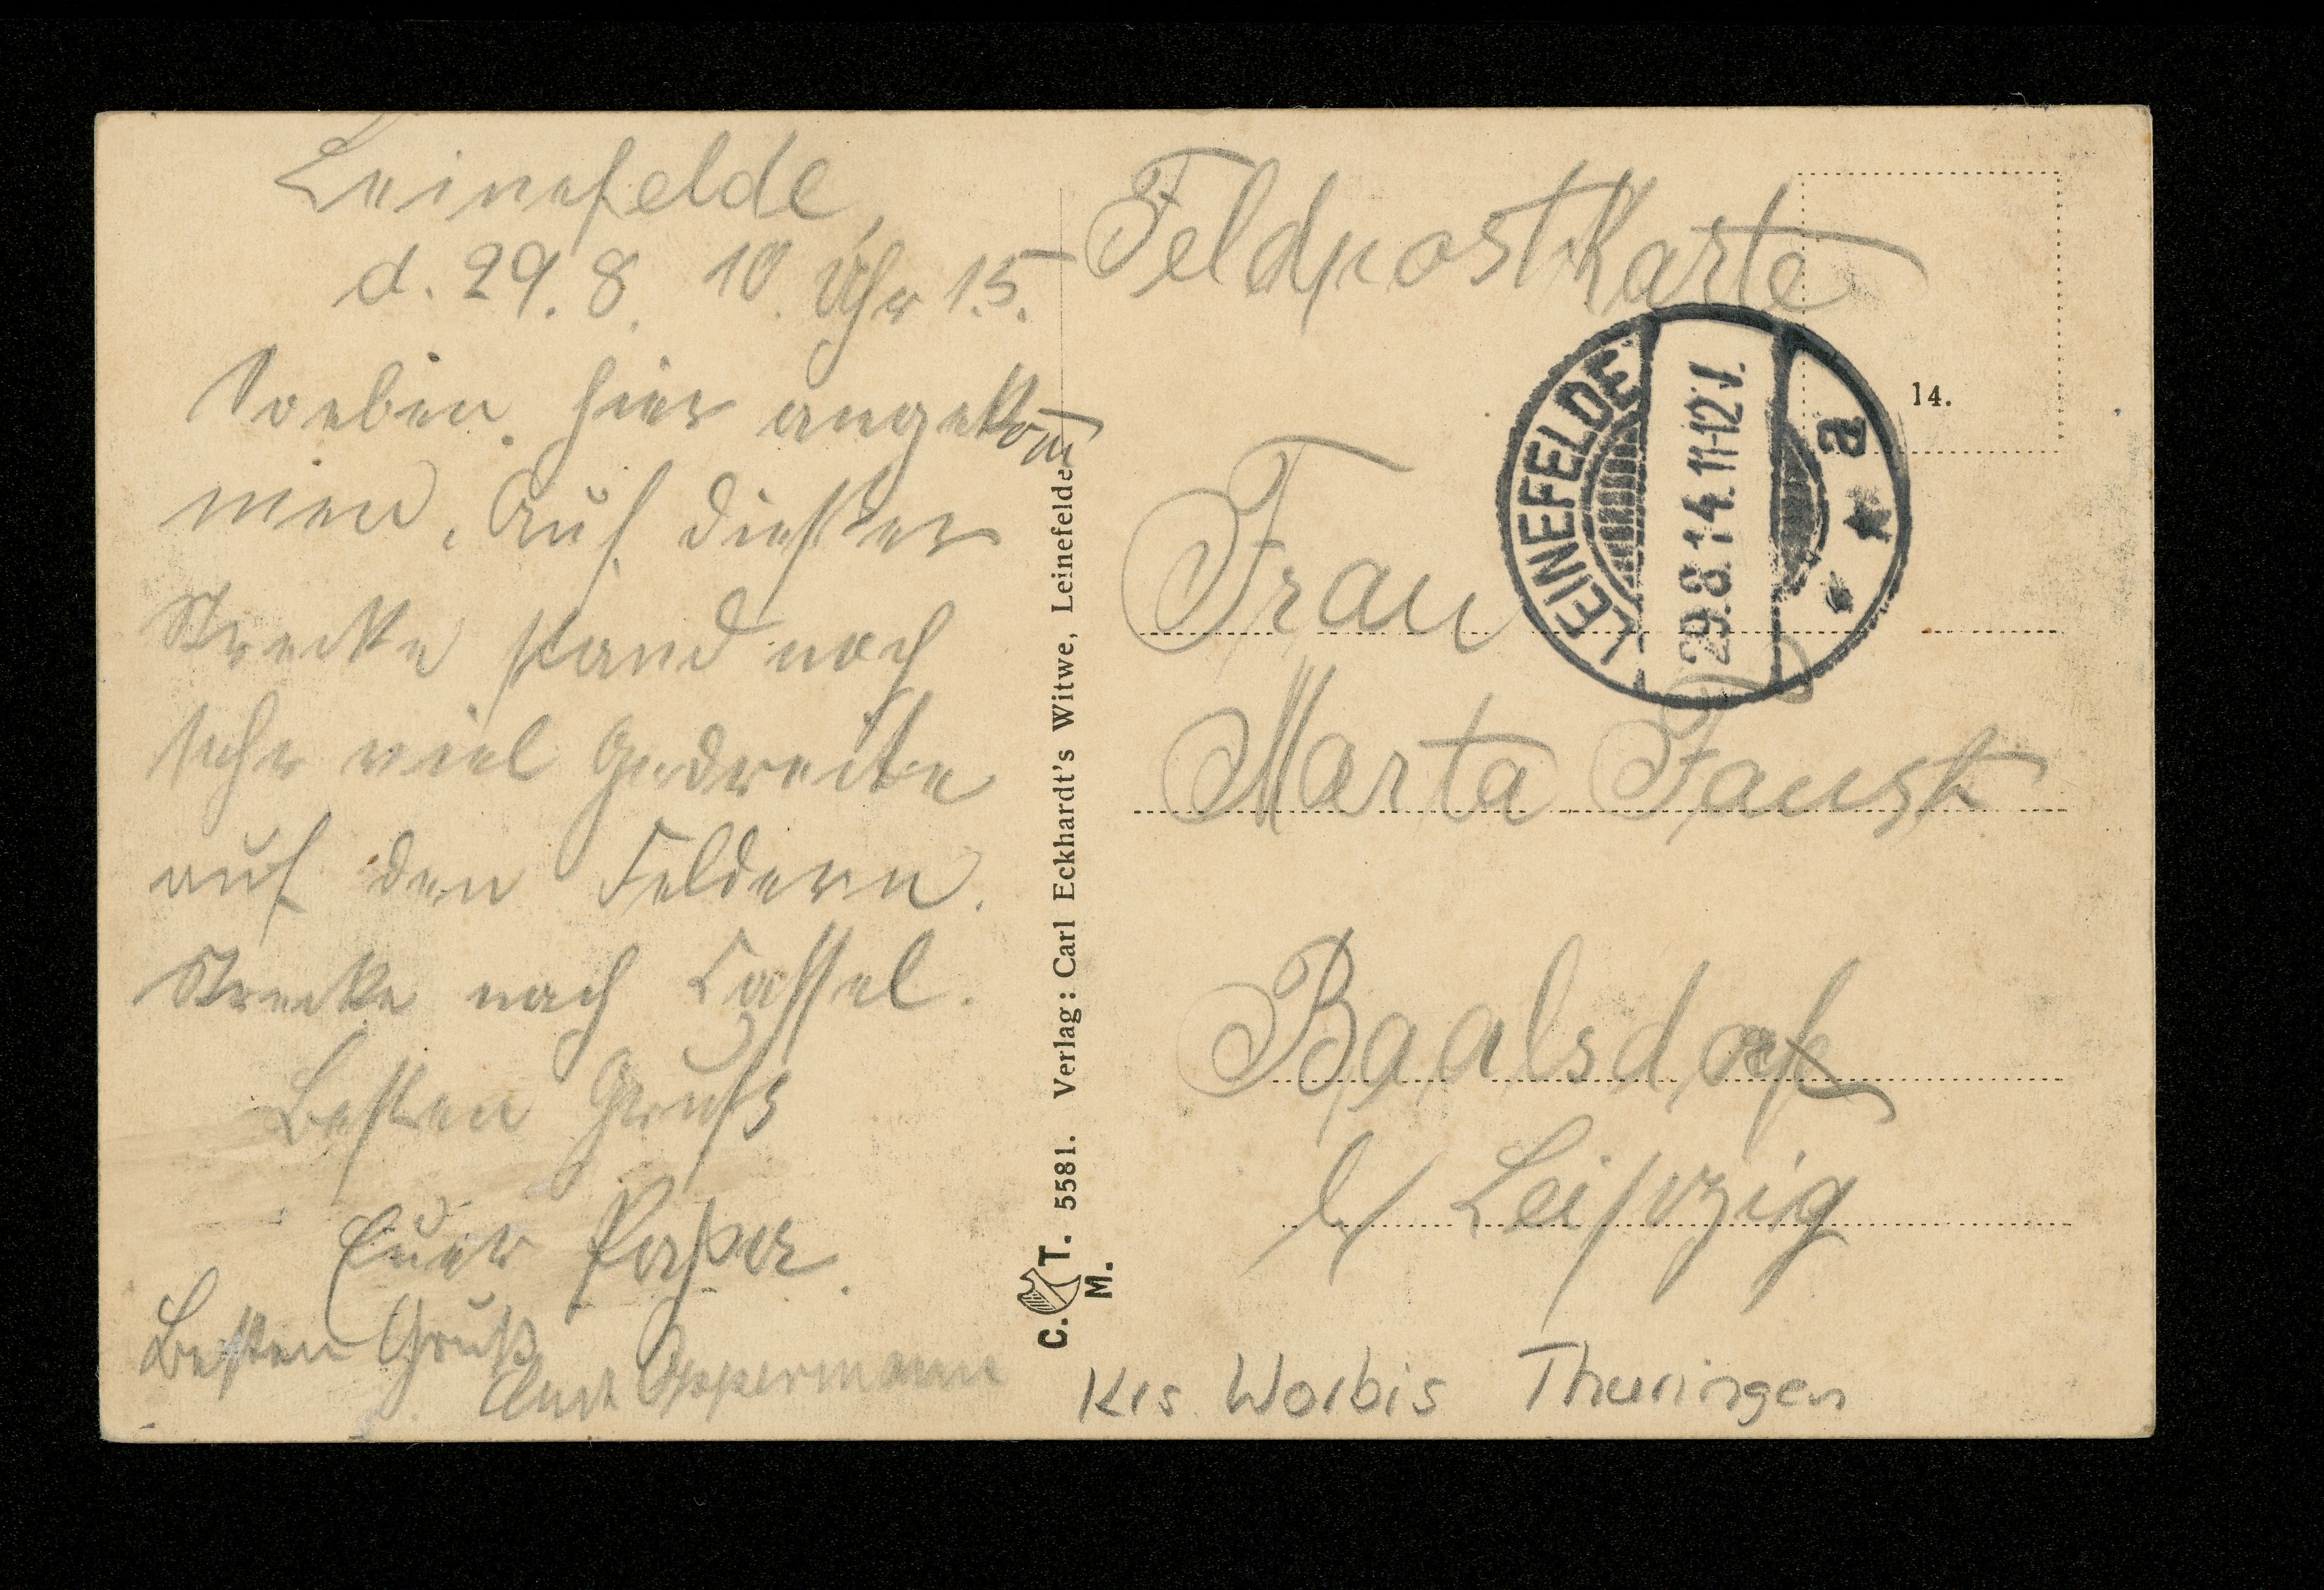 Leinefelde,
d. 29. 8. 10. Uhr 15.
Soeben hier angekom̅
men. Auf dießer
Strecke stand noch
sehr viel Gedreite
auf den Feldern.
Strecke nach Cassel.
Besten Gruß
Euer
Besten Gruß
Oppermann
C. T. M. 5581. Verlag: Carl Eckhardt's Witwe, Leinefelde
Feldpostkarte
14.
LEINEFELDE
29.8.14. 11-12 V.
a
Frau
Marta Faust
Baalsdorf
b/ Leipzig
Krs. Worbis Thuringen